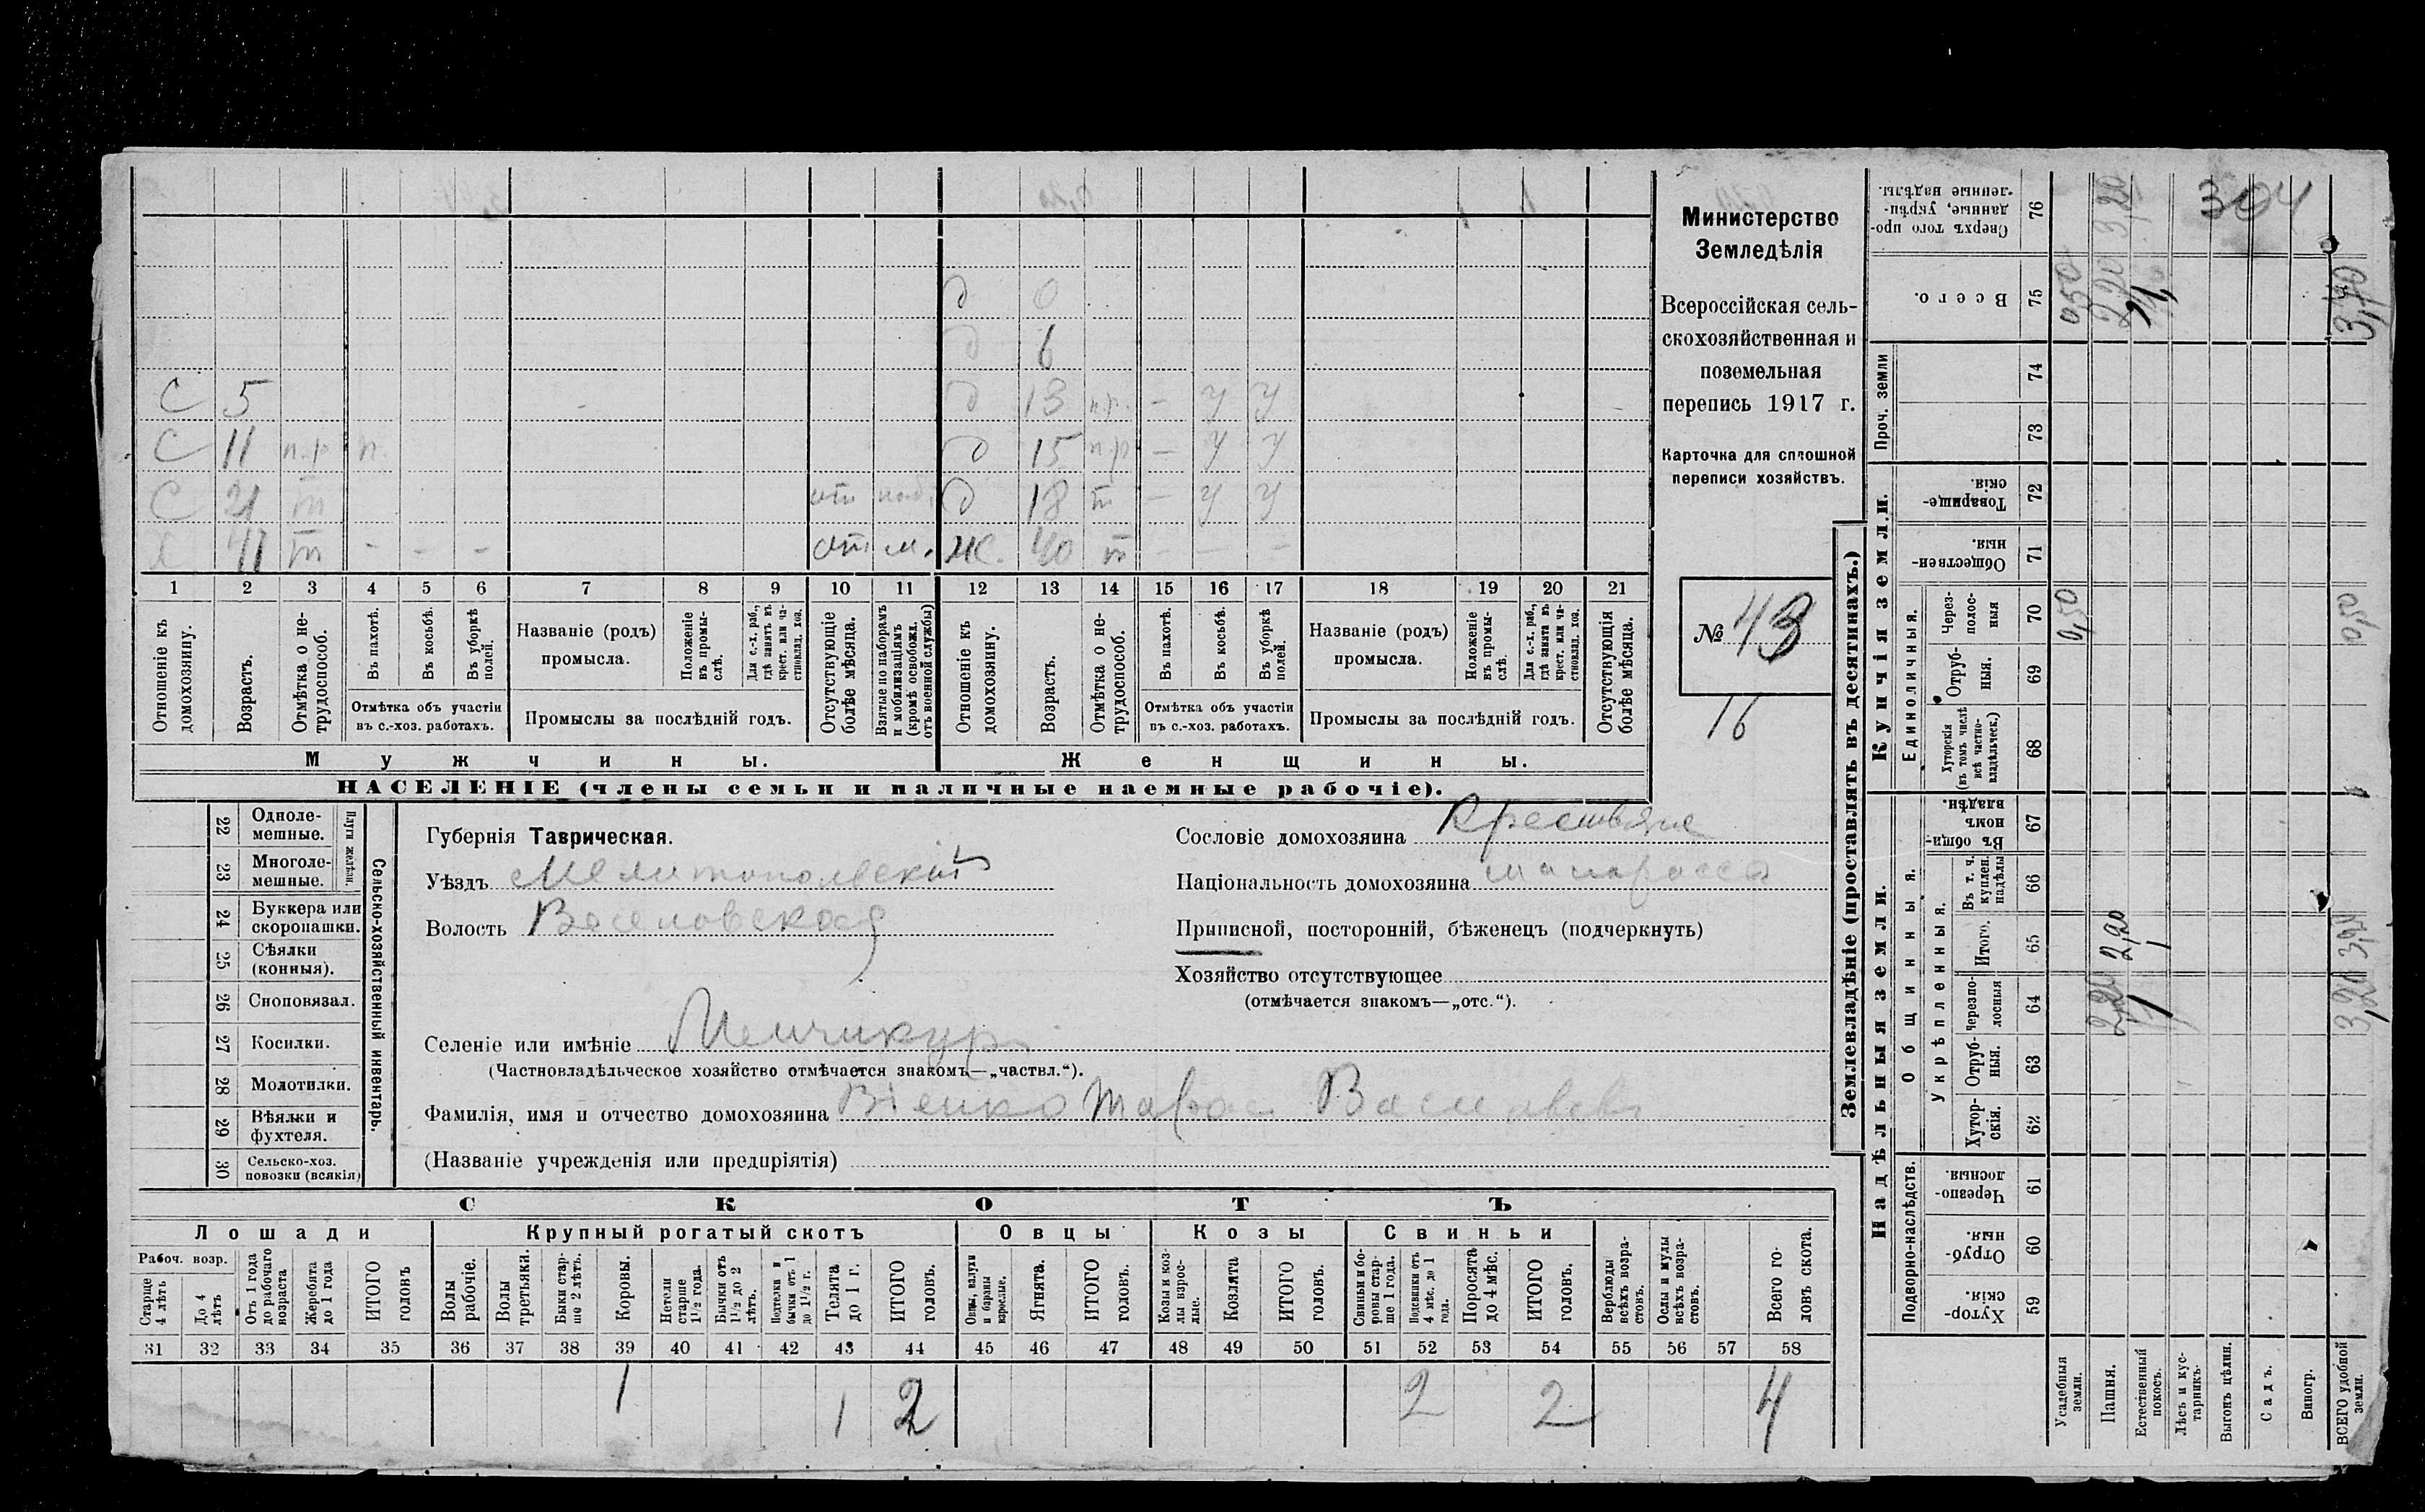 Министерство
Земледѣлія
Всероссійская сель-
скохозяйственная и
поземельная
перепись 1917 г.
Карточка для сплошной
переписи хозяйствъ.
№ 43
16
д 0
д 6
С 5 д 13 п.р. - у у
С 11 п.р п. д 15 п.р - у у
С 21 т от. д 18 т - у у
41 т - - - от м. ж. 40 т - - -
1 2 3 4 5 6 7 8 9 10 11 12 13 14 15 16 17 18 19 20 21
Отношеніе къ домохозяину.
Возрастъ.
Отмѣтка о не-трудоспособ.
Въ пахотѣ.
Въ косьбѣ.
Въ уборкѣ полей.
Отмѣтка объ участіи
въ с.-хоз. работахъ.
Названіе (родъ)
промысла.
Положеніе въ промы-слѣ.
Для с.-х. раб., гдѣ занятъ въ крест. или ча-стновлад. хоз.
Промыслы за послѣдній годъ.
Отсутствующіе болѣе мѣсяца.
Взятые по наборамъ и мобилизаціямъ (кромѣ освобожд. отъ военной службы)
Отношеніе къ домохозяину.
Возрастъ.
Отмѣтка о не-трудоспособ.
Въ пахотѣ.
Въ косьбѣ.
Въ уборкѣ полей.
Отмѣтка объ участіи
въ с.-хоз. работахъ.
Названіе (родъ)
промысла.
Положеніе въ промы-слѣ.
Для с.-х. раб., гдѣ занята въ крест. или ча-стновлад. хоз.
Промыслы за послѣдній годъ.
Отсутствующія болѣе мѣсяца.
Мужчины.
Женщины.
НАСЕЛЕНІЕ (члены семьи и наличные наемные рабочіе).
22 Одноле-мешные.
23 Многоле-мешные.
Плуги желѣзн.
24 Буккера или скоропашки.
25 Сѣялки (конныя).
26 Сноповязал.
27 Косилки.
28 Молотилки.
29 Вѣялки и фухтеля.
30 Сельско-хоз. повозки (всякія)
Сельско-хозяйственный инвентарь.
Губернія Таврическая.
Уѣздъ Мелитопольскій
Волость Веселовская
Сословіе домохозяина Крестьяне
Національность домохозяина малороссъ
Приписной, посторонній, бѣженецъ (подчеркнуть)
Хозяйство отсутствующее
(отмѣчается знакомъ—„отс.“).
Селеніе или имѣніе Менчикуръ
(Частновладѣльческое хозяйство отмѣчается знакомъ—„частвл.“).
Фамилія, имя и отчество домохозяина Тарас
(Названіе учрежденія или предпріятія)
СКОТЪ
Лошади
Крупный рогатый скотъ
Овцы
Козы
Свиньи
Рабоч. возр.
Старше 4 лѣтъ
До 4 лѣтъ
Отъ 1 года до рабочаго возраста
Жеребята до 1 года
ИТОГО головъ
Волы рабочіе.
Волы третьяки.
Быки стар-ше 2 лѣтъ.
Коровы.
Нетели старше 1½ года.
Бычки отъ 1½ до 2 лѣтъ.
Подтелки и бычки отъ 1 до 1½ г.
Телята до 1 г.
ИТОГО головъ.
Овцы, валухи и бараны взрослые.
Ягнята.
ИТОГО головъ.
Козы и коз-лы взрос-лые.
Козлята
ИТОГО головъ.
Свиньи и бо-ровы стар-ше 1 года.
Подсвинки отъ 4 мѣс. до 1 года.
Поросята до 4 мѣс.
ИТОГО головъ.
Верблюды всѣхъ возра-стовъ.
Ослы и мулы всѣхъ возра-стовъ.
Всего го-ловъ скота.
31 32 33 34 35 36 37 38 39 40 41 42 43 44 45 46 47 48 49 50 51 52 53 54 55 56 57 58
1 1 2 2 2 4
Землевладѣніе (проставлять въ десятинахъ.)
Надѣльныя земли.
Купчія земли.
Проч. земли
Подворно-наслѣдств.
Общинныя.
Укрѣпленныя.
Единоличныя.
Сверхъ того про-данные, укрѣп-ленные надѣлы. 76 3,20 304
Всего. 75 0,50 2,20 3,70
74
73
Товарище-скія. 72
Обществен-ныя. 71
Через-полос-ныя 70 0,50 0,50
Отруб-ныя. 69
Хуторскія (въ томъ числѣ всѣ частно-владѣльческ.) 68
Въ общин-номъ владѣн. 67
Въ т. ч. куплен. надѣлы 66
Итого. 65 2,20
Черезпо-лосныя 64 2,20 3,20
Отруб-ныя. 63
Хутор-скія. 62
Черезпо-лосныя. 61
Отруб-ныя. 60
Хутор-скія. 59
Усадебныя земли.
Пашня.
Естественный покосъ.
Лѣсъ и кус-тарникъ.
Выгонъ цѣлин.
Садъ.
Виногр.
ВСЕГО удобной земли.